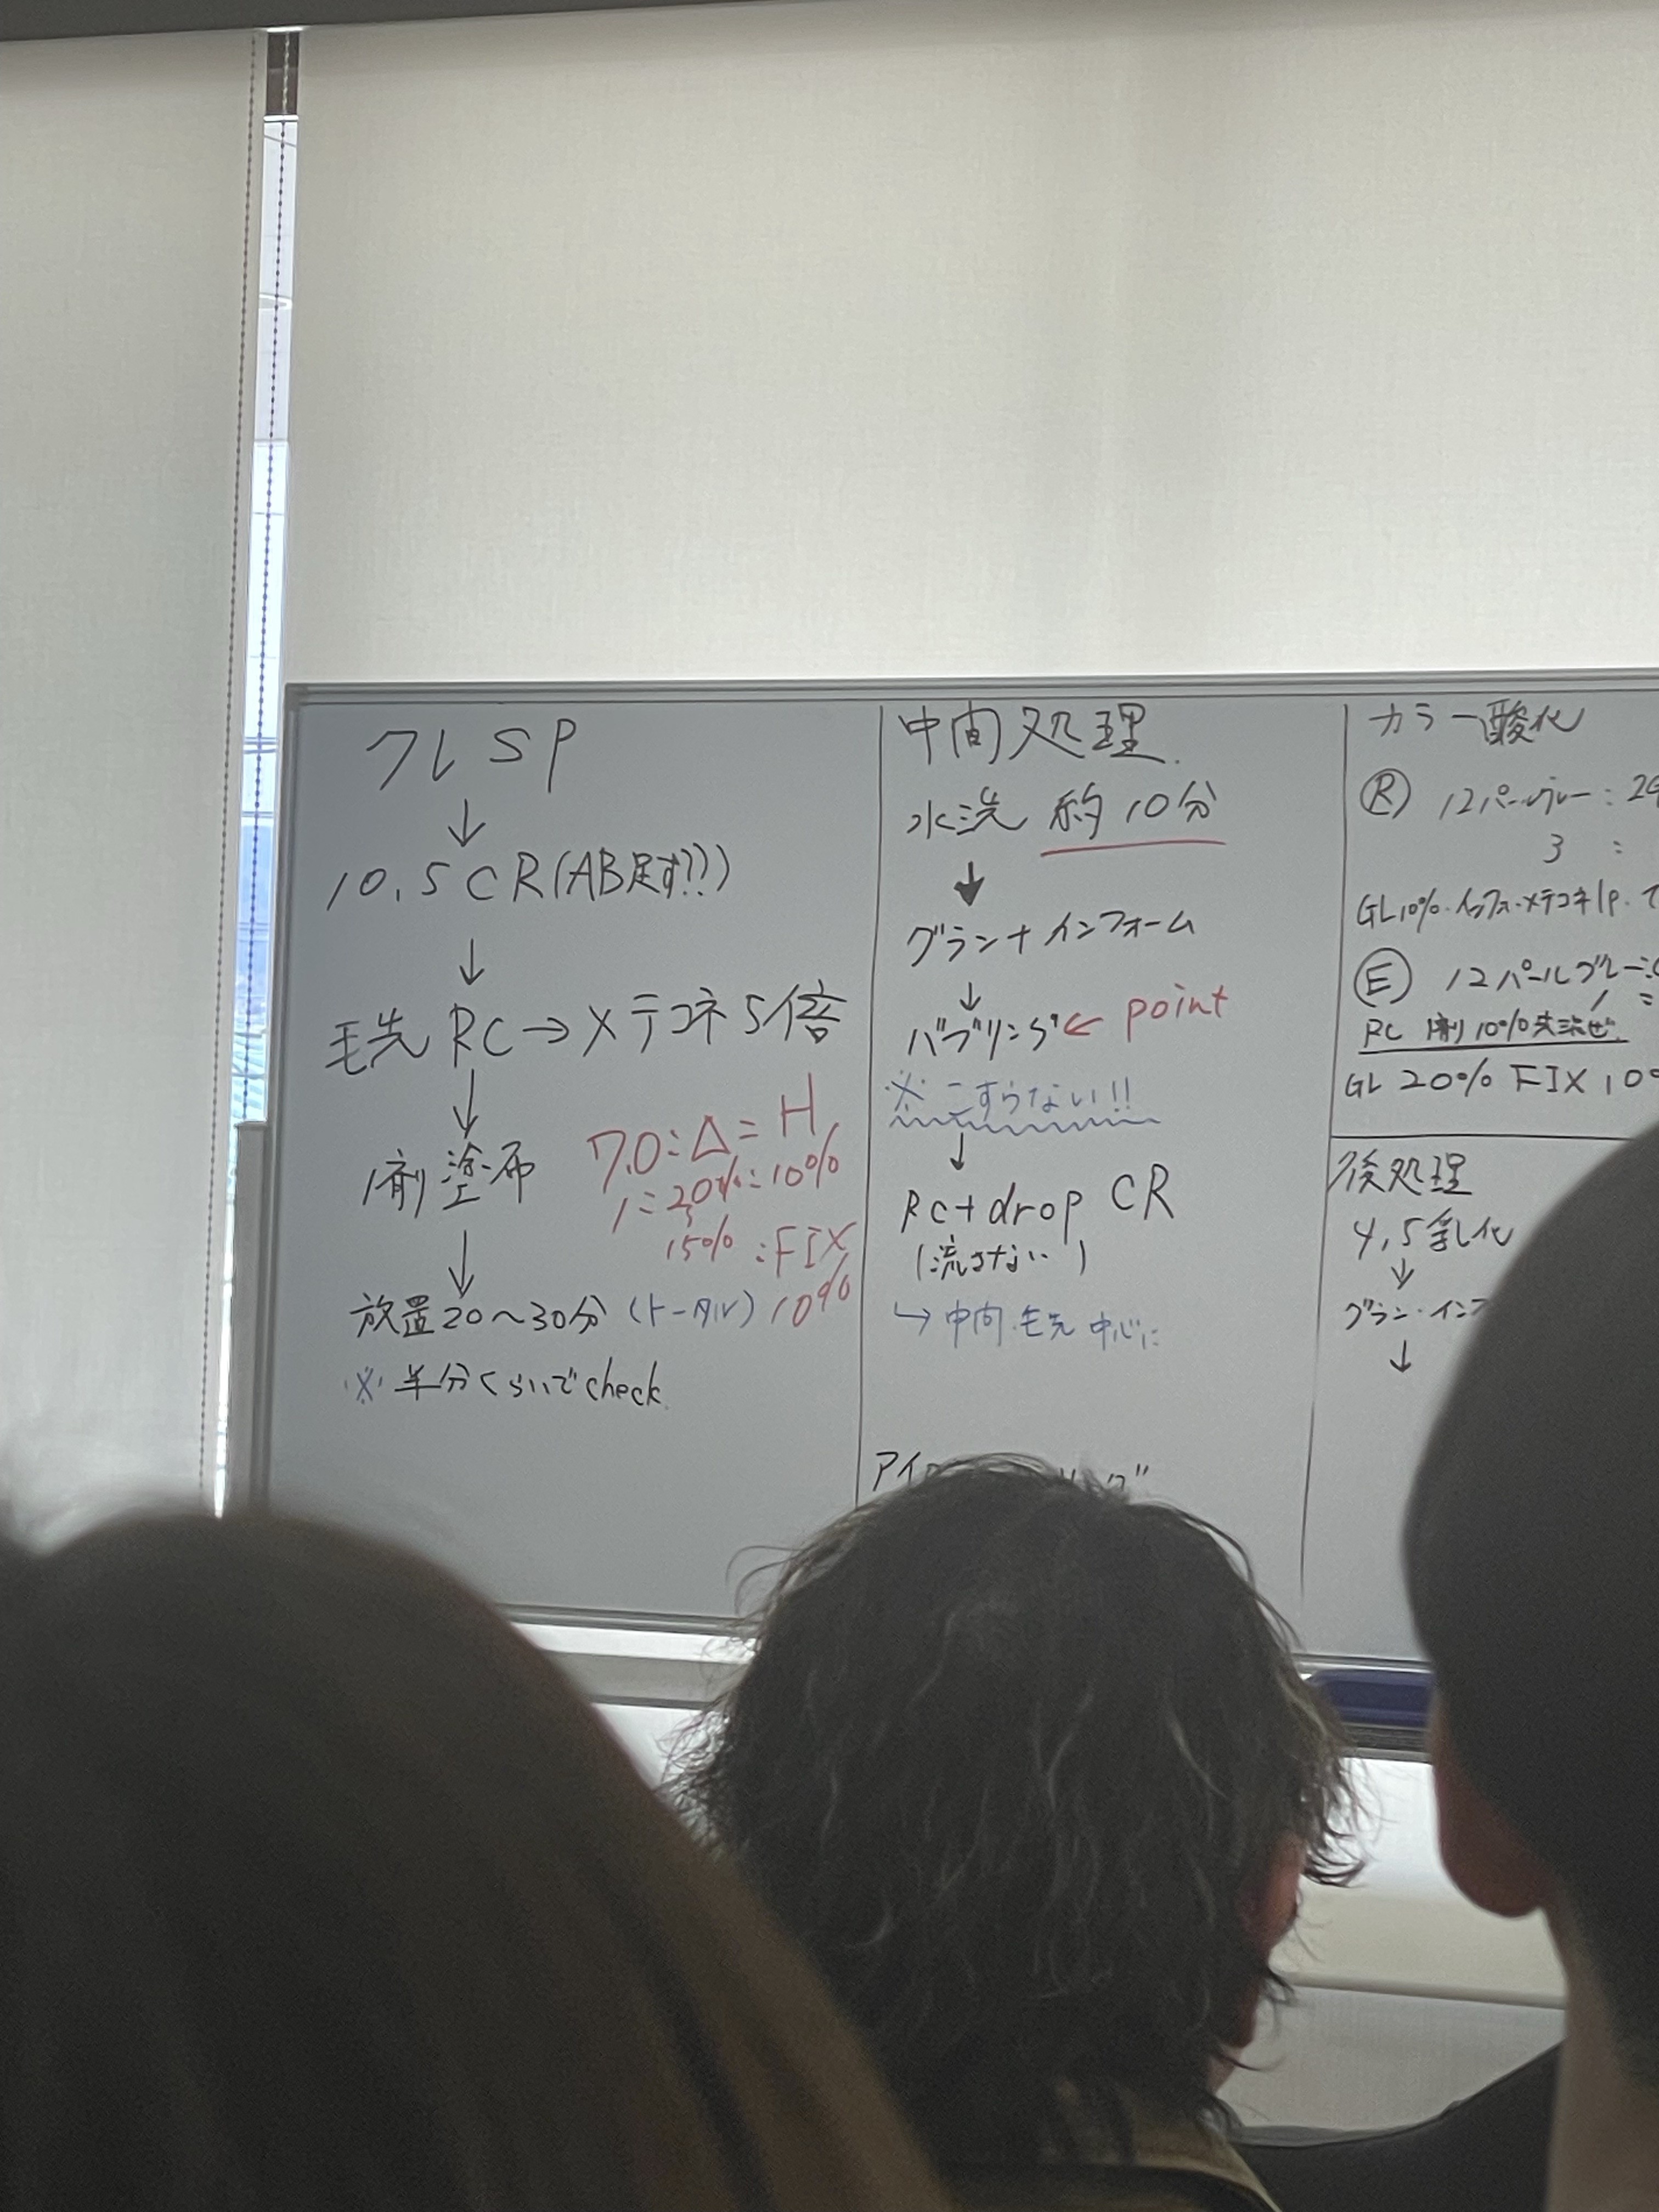 クレ SP
↓
10.5 CR(AB足す??)
↓
毛先 RC→メテコネ5倍
↓
1剤塗布
7.0:△=H
1=20%:10%
15%:FIX
10%
↓
放置20〜30分(トータル)
※半分くらいでcheck
中間処理
水洗 約10分
↓
グラン+インフォーム
↓
バブリング← point
※こすらない!!
↓
RC+drop CR
(流さない)
↳中間.毛先 中心に
カラー酸化
Ⓡ 12パールグレー:
3 :
GL10%.インフォ.メテコネ1p.
Ⓔ 12パールグレー:
1 =
RC 1剤10%
GL 20% FIX
後処理
4.5乳化
↓
グラン・インフ
↓